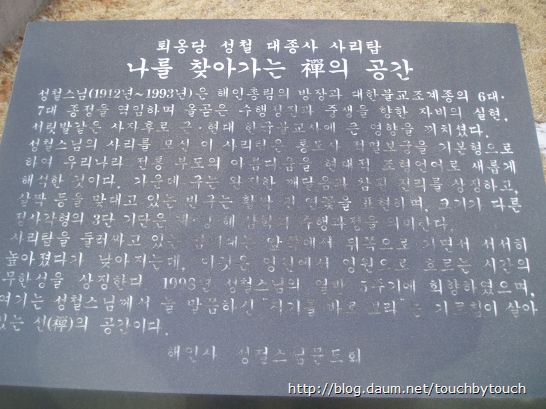 퇴옹당 성철 대종사 사리탑
나를 찾아가는 禪의 공간
성철스님(1912년~1993년)은 해인총림의 방장과 대한불교조계종의 6대·
7대 종정을 역임하며 올곧은 수행정진과 중생을 향한 자비의 실현,
서릿발같은 사자후로 근·현대 한국불교사에 큰 영향을 끼치셨다.
성철스님의 사리를 모신 이 사리탑은 통도사 적멸보궁을 기본형으로
하여 우리나라 전통 부도의 아름다움을 현대적 조형언어로 새롭게
해석한 것이다. 가운데 구는 완전한 깨달음과 참된 진리를 상징하고,
살짝 등을 맞대고 있는 반구는 활짝 핀 연꽃을 표현하며, 크기가 다른
정사각형의 3단 기단은 계·정·혜 삼학의 수행과정을 의미한다.
사리탑을 둘러싸고 있는 앞쪽에서 뒤쪽으로 가면서 서서히
높아졌다가 낮아지는데, 이것은 영원에서 영원으로 흐르는 시간의
무한성을 상징한다. 1998년 성철스님의 열반 5주기에 회향하였으며,
여기는 성철스님께서 늘 말씀하신 "자기를 바로 보라"는 가르침이 살아
있는 선(禪)의 공간이다.
해인사 성철스님문도회
http://blog.daum.net/touchbytouch